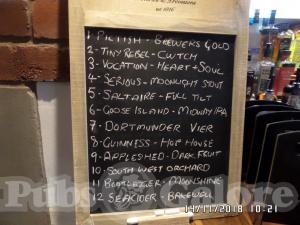 est 1816
1 PICTISH - BREWERS GOLD
2 - TINY REBEL - CWTCH
3 - VOCATION - HEART + SOUL
4 - SERIOUS - MOONLIGHT STOUT
5 - SALTAIRE - FULL TILT
6 - GOOSE ISLAND - MIDWAY IPA
7 - DORTMUNDER VIER
8 - GUINNESS - HOP HOUSE
9 - APPLESHED - DARK FRUIT
10 - SOUTH WEST ORCHARD
11 BOOTLEGGER - MOONSHINE
12 SEACIDER - BAKEWELL
Pubs & more
14/11/2018 10:21